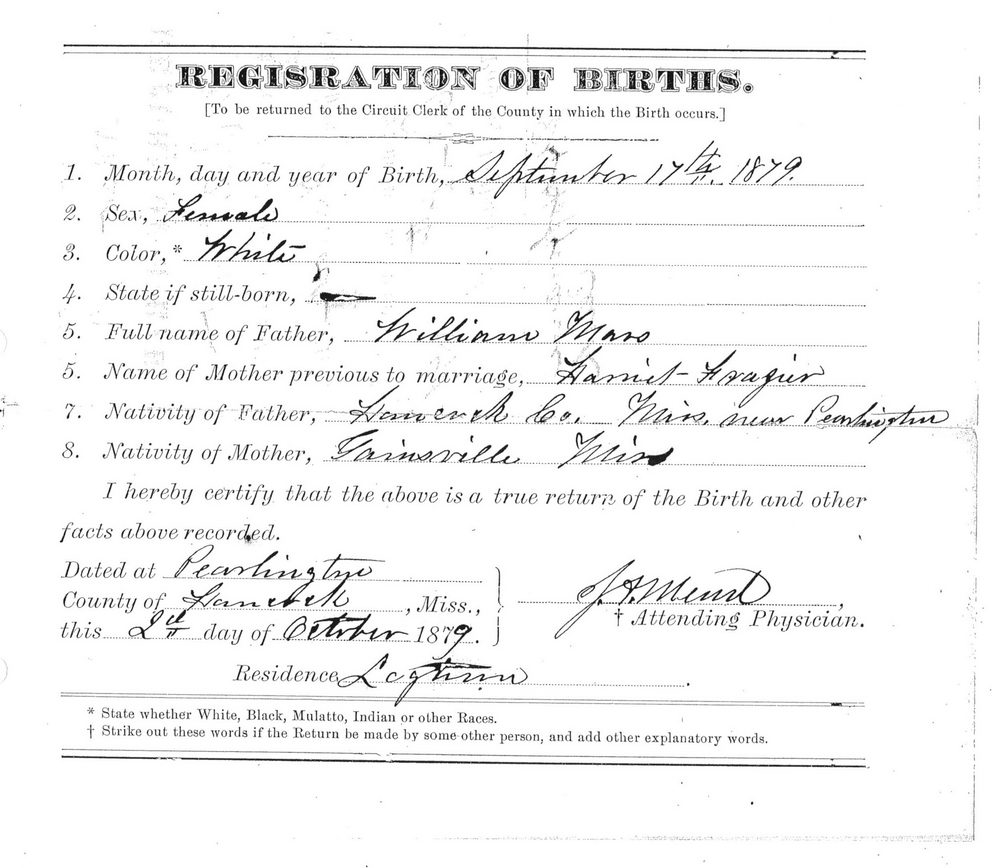 REGISRATION OF BIRTHS.
[To be returned to the Circuit Clerk of the County in which the Birth occurs.]
1. Month, day and year of Birth, September 17th. 1879.
2. Sex, Female
3. Color,* White
4. State if still-born, —
5. Full name of Father, William
5. Name of Mother previous to marriage, Harriet Frazier
7. Nativity of Father, Hancock Co. Miss. near Pearlington
8. Nativity of Mother, Gainsville Miss
I hereby certify that the above is a true return of the Birth and other
facts above recorded.
Dated at Pearlington
County of Hancock, Miss.,
this 2d day of October 1879.
† Attending Physician.
Residence Logtown.
* State whether White, Black, Mulatto, Indian or other Races.
† Strike out these words if the Return be made by some other person, and add other explanatory words.